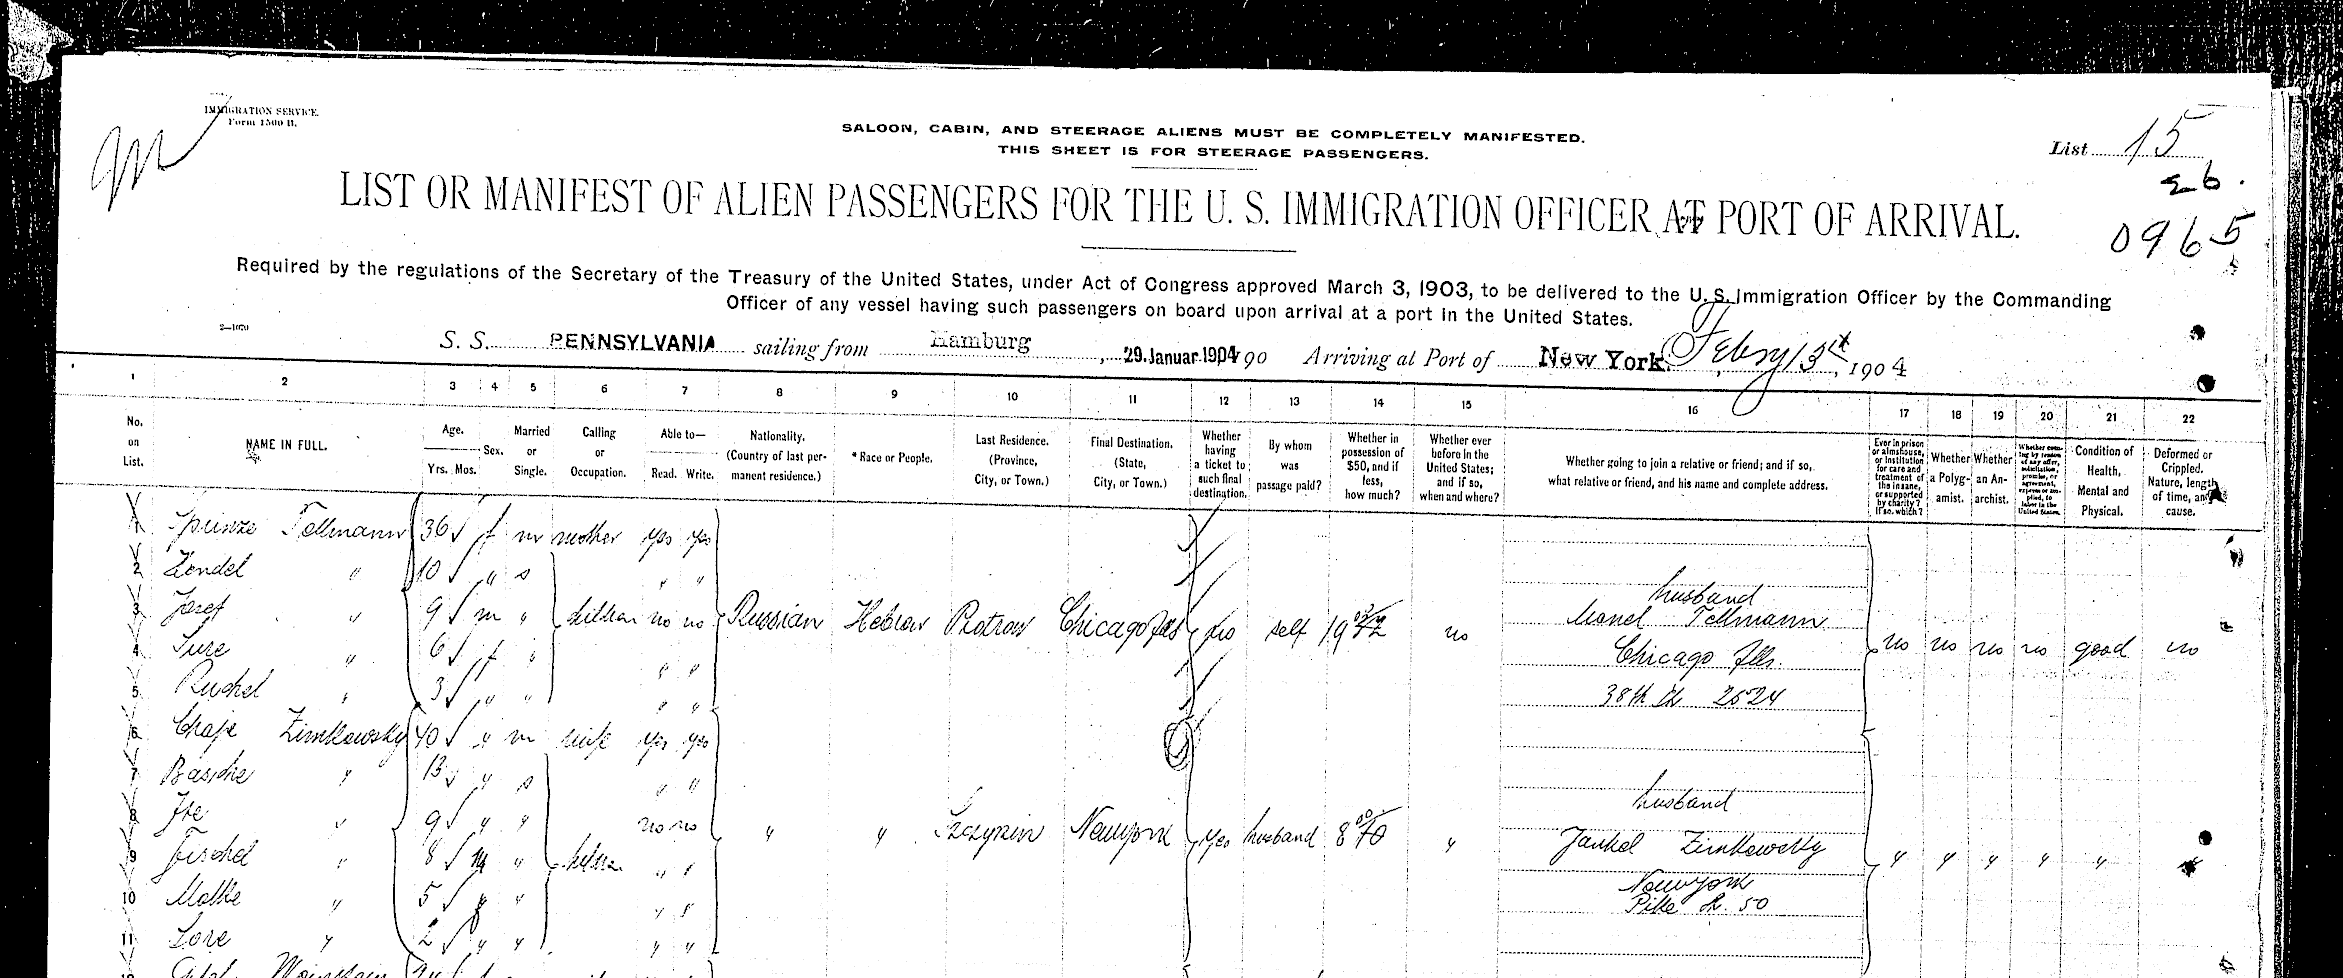 IMMIGRATION SERVICE.
Form 1500 B.
SALOON, CABIN, AND STEERAGE ALIENS MUST BE COMPLETELY MANIFESTED.
THIS SHEET IS FOR STEERAGE PASSENGERS.
List 15
0965
LIST OR MANIFEST OF ALIEN PASSENGERS FOR THE U. S. IMMIGRATION OFFICER AT PORT OF ARRIVAL.
Required by the regulations of the Secretary of the Treasury of the United States, under Act of Congress approved March 3, 1903, to be delivered to the U. S. Immigration Officer by the Commanding
Officer of any vessel having such passengers on board upon arrival at a port in the United States.
2—1070
S. S. PENNSYLVANIA sailing from Hamburg, 29. Januar 1904 190 Arriving at Port of New York, Febry 13th, 1904
1 2 3 4 5 6 7 8 9 10 11 12 13 14 15 16 17 18 19 20 21 22
No. on List.
NAME IN FULL.
Age.
Yrs. Mos.
Sex.
Married or Single.
Calling or Occupation.
Able to—
Read. Write.
Nationality. (Country of last permanent residence.)
* Race or People.
Last Residence. (Province, City, or Town.)
Final Destination. (State, City, or Town.)
Whether having a ticket to such final destination.
By whom was passage paid?
Whether in possession of $50, and if less, how much?
Whether ever before in the United States; and if so, when and where?
Whether going to join a relative or friend; and if so, what relative or friend, and his name and complete address.
Ever in prison or almshouse, or institution for care and treatment of the insane, or supported by charity? If so, which?
Whether a Polygamist.
Whether an Anarchist.
Condition of Health, Mental and Physical.
Deformed or Crippled. Nature, length of time, and cause.
1 Sprinze Tellmann 36 f m mother yes yes
2 Zendel " 10 " s " "
3 Josef " 9 m " no no Russian Hebrew Piotrow Chicago no self 19 no husband
Tellmann no no no no good no
4 Sure " 6 f " " "
Chicago Ills.
5 Ruchel " 3 " " " "
38th 2524
6 Chaje Zimkowsky 40 " m wife yes yes
7 Basche " 13 " s " "
8 " 9 " " no no " " Newyork yes husband 8 " husband
9 Fischel " 8 m " " "
Jankel Zimkowsky " " " " " "
Newyork
10 Malke " 5 " " " "
Pike 50
11 " 2 " " " "